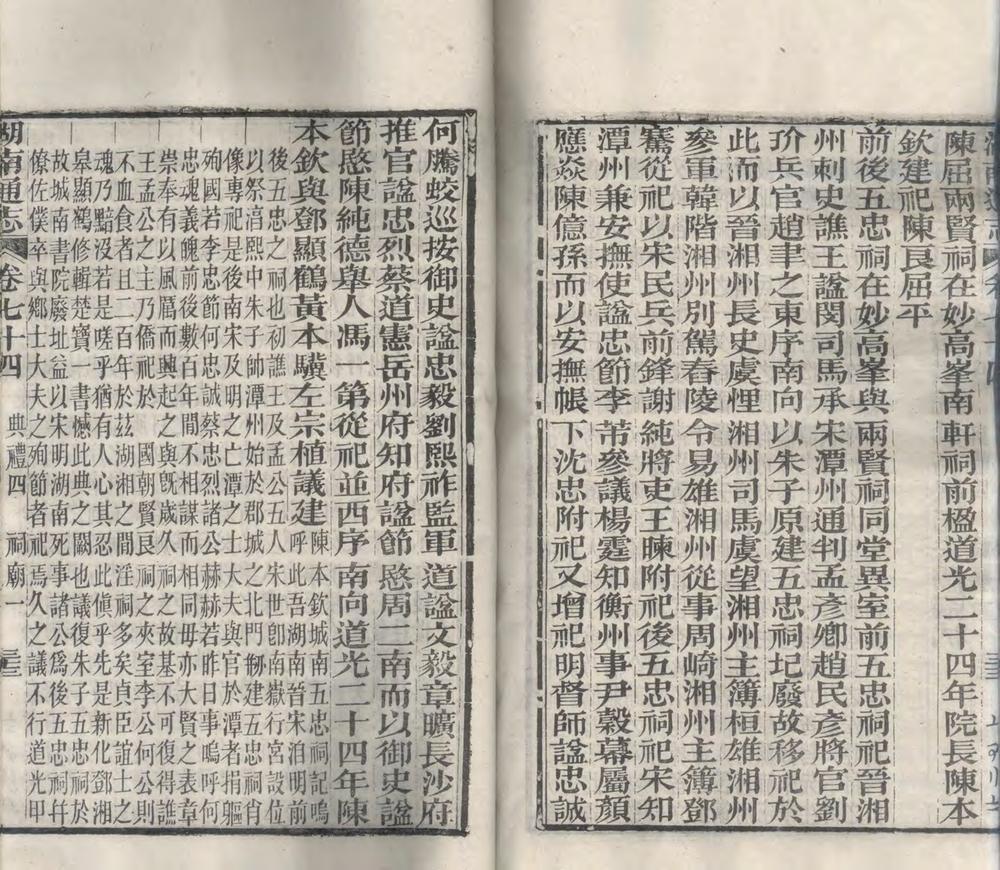 陳屈兩賢祠在妙高峯南軒祠前楹道光二十四年院長陳本
欽建祀陳良屈平
前後五忠祠在妙高峯與兩賢祠同堂異室前五忠祠祀晉湘
州刺史譙王諡閔司馬承宋潭州通判孟彥卿趙民彥將官劉
玠兵官趙聿之東序南向以朱子原建五忠祠圮廢故移祀於
此而以晉湘州長史虞悝湘州司馬虞望湘州主簿桓雄湘州
參軍韓階湘州別駕舂陵令易雄湘州從事周崎湘州主簿鄧
騫從祀以宋民兵前鋒謝純將吏王暕附祀後五忠祠祀宋知
潭州兼安撫使諡忠節李芾參議楊霆知衡州事尹穀幕屬顏
應焱陳億孫而以安撫帳下沈忠附祀又增祀明督師諡忠誠
何騰蛟巡按御史諡忠毅劉熙祚監軍道諡文毅章曠長沙府
推官諡忠烈蔡道憲岳州府知府諡節愍周二南而以御史諡
節愍陳純德舉人馮一第從祀並西序南向道光二十四年陳
本欽與鄧顯鶴黃本驥左宗植議建
陳本欽城南五忠祠記嗚
呼此吾湖南晉宋洎明前
後五忠之祠也初譙王及孟公五人宋世卽南嶽行宮設位
以祭淳熙中朱子師潭州始於郡城之北門剏建五忠祠肖
像專祀是後南宋及明之亡潭之士大夫與官於潭者捐軀
殉國若李忠節何忠誠蔡忠烈諸公赫赫若昨日事嗚呼何
忠魂義魄前後數百年間不相謀而相同毋亦大賢之表章
崇奉有以風厲而興起之與旣歲久祠之故基不可復得譙
王孟公之主乃僑祀於國朝賢良祠之夾室李公何公則
不血食者且二百年於茲湖湘之間淫祠多矣貞臣誼士之
魂乃黯沒若是嗟乎猶有人心其忍此傎乎先是新化鄧湘
皋顯鶴修輯楚寶一書憾此典之闕也議復朱子五忠祠於
故城南書院廢址益以宋明湖南死事諸公爲後五忠祠幷
僚佐僕卒與鄉士大夫之殉節者祀焉久之議不行道光甲
湖南通志 卷七十四 典禮四 祠廟一 三三